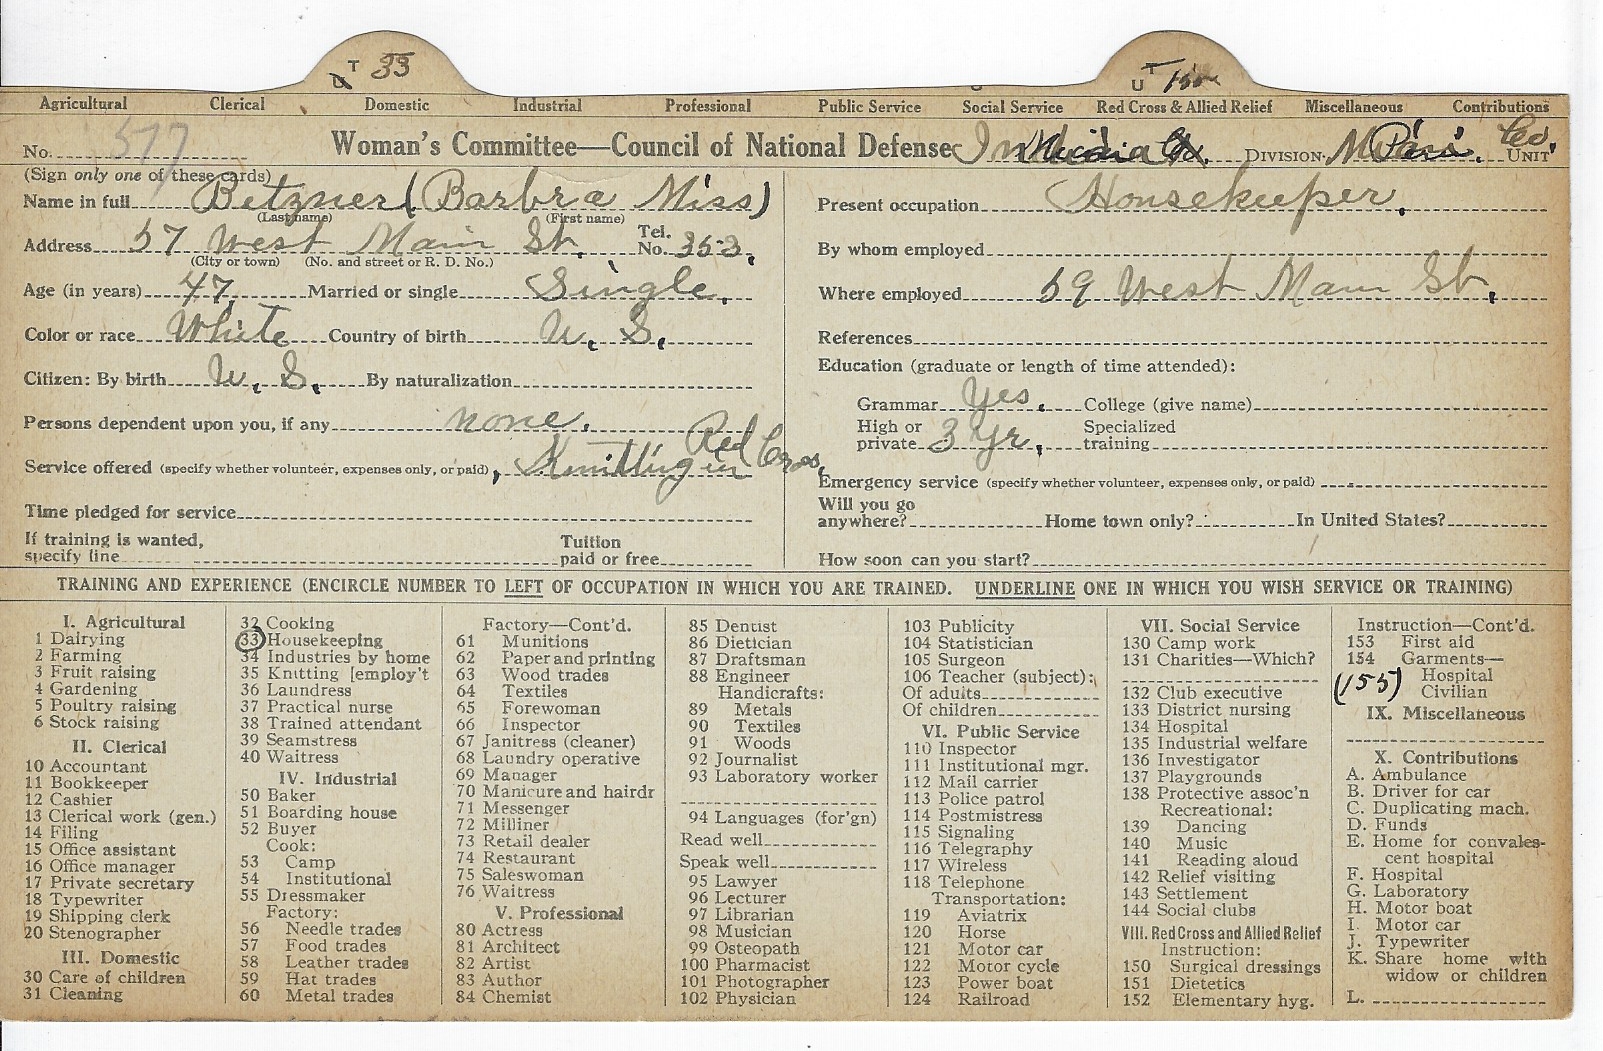 T 33
U T 155
Agricultural Clerical Domestic Industrial Professional Public Service Social Service Red Cross & Allied Relief Miscellaneous Contributions
No. 577 Woman's Committee—Council of National Defense DIVISION Co. UNIT
(Sign only one of these cards)
Name in full Betzner (Barbra Miss)
(Last name) (First name)
Address 57 West Main St. Tel. No. 353.
(City or town) (No. and street or R. D. No.)
Age (in years) 47 Married or single Single.
Color or race White Country of birth U. S.
Citizen: By birth U. S. By naturalization
Persons dependent upon you, if any none.
Service offered (specify whether volunteer, expenses only, or paid), Knitting in Red Cross.
Time pledged for service
If training is wanted, specify line Tuition paid or free
Present occupation Housekeeper.
By whom employed
Where employed 59 West Main St.
References
Education (graduate or length of time attended):
Grammar Yes. College (give name)
High or private 3 Yr. Specialized training
Emergency service (specify whether volunteer, expenses only, or paid)
Will you go anywhere? Home town only? In United States?
How soon can you start?
TRAINING AND EXPERIENCE (ENCIRCLE NUMBER TO LEFT OF OCCUPATION IN WHICH YOU ARE TRAINED. UNDERLINE ONE IN WHICH YOU WISH SERVICE OR TRAINING)
I. Agricultural
1 Dairying
2 Farming
3 Fruit raising
4 Gardening
5 Poultry raising
6 Stock raising
II. Clerical
10 Accountant
11 Bookkeeper
12 Cashier
13 Clerical work (gen.)
14 Filing
15 Office assistant
16 Office manager
17 Private secretary
18 Typewriter
19 Shipping clerk
20 Stenographer
III. Domestic
30 Care of children
31 Cleaning
32 Cooking
33 Housekeeping
34 Industries by home
35 Knitting [employ't
36 Laundress
37 Practical nurse
38 Trained attendant
39 Seamstress
40 Waitress
IV. Industrial
50 Baker
51 Boarding house
52 Buyer
Cook:
53 Camp
54 Institutional
55 Dressmaker
Factory:
56 Needle trades
57 Food trades
58 Leather trades
59 Hat trades
60 Metal trades
Factory—Cont'd.
61 Munitions
62 Paper and printing
63 Wood trades
64 Textiles
65 Forewoman
66 Inspector
67 Janitress (cleaner)
68 Laundry operative
69 Manager
70 Manicure and hairdr
71 Messenger
72 Milliner
73 Retail dealer
74 Restaurant
75 Saleswoman
76 Waitress
V. Professional
80 Actress
81 Architect
82 Artist
83 Author
84 Chemist
85 Dentist
86 Dietician
87 Draftsman
88 Engineer
Handicrafts:
89 Metals
90 Textiles
91 Woods
92 Journalist
93 Laboratory worker
94 Languages (for'gn)
Read well
Speak well
95 Lawyer
96 Lecturer
97 Librarian
98 Musician
99 Osteopath
100 Pharmacist
101 Photographer
102 Physician
103 Publicity
104 Statistician
105 Surgeon
106 Teacher (subject):
Of adults
Of children
VI. Public Service
110 Inspector
111 Institutional mgr.
112 Mail carrier
113 Police patrol
114 Postmistress
115 Signaling
116 Telegraphy
117 Wireless
118 Telephone
Transportation:
119 Aviatrix
120 Horse
121 Motor car
122 Motor cycle
123 Power boat
124 Railroad
VII. Social Service
130 Camp work
131 Charities—Which?
132 Club executive
133 District nursing
134 Hospital
135 Industrial welfare
136 Investigator
137 Playgrounds
138 Protective assoc'n
Recreational:
139 Dancing
140 Music
141 Reading aloud
142 Relief visiting
143 Settlement
144 Social clubs
VIII. Red Cross and Allied Relief
Instruction:
150 Surgical dressings
151 Dietetics
152 Elementary hyg.
Instruction—Cont'd.
153 First aid
154 Garments—
Hospital
(155) Civilian
IX. Miscellaneous
X. Contributions
A. Ambulance
B. Driver for car
C. Duplicating mach.
D. Funds
E. Home for convales-
cent hospital
F. Hospital
G. Laboratory
H. Motor boat
I. Motor car
J. Typewriter
K. Share home with
widow or children
L.